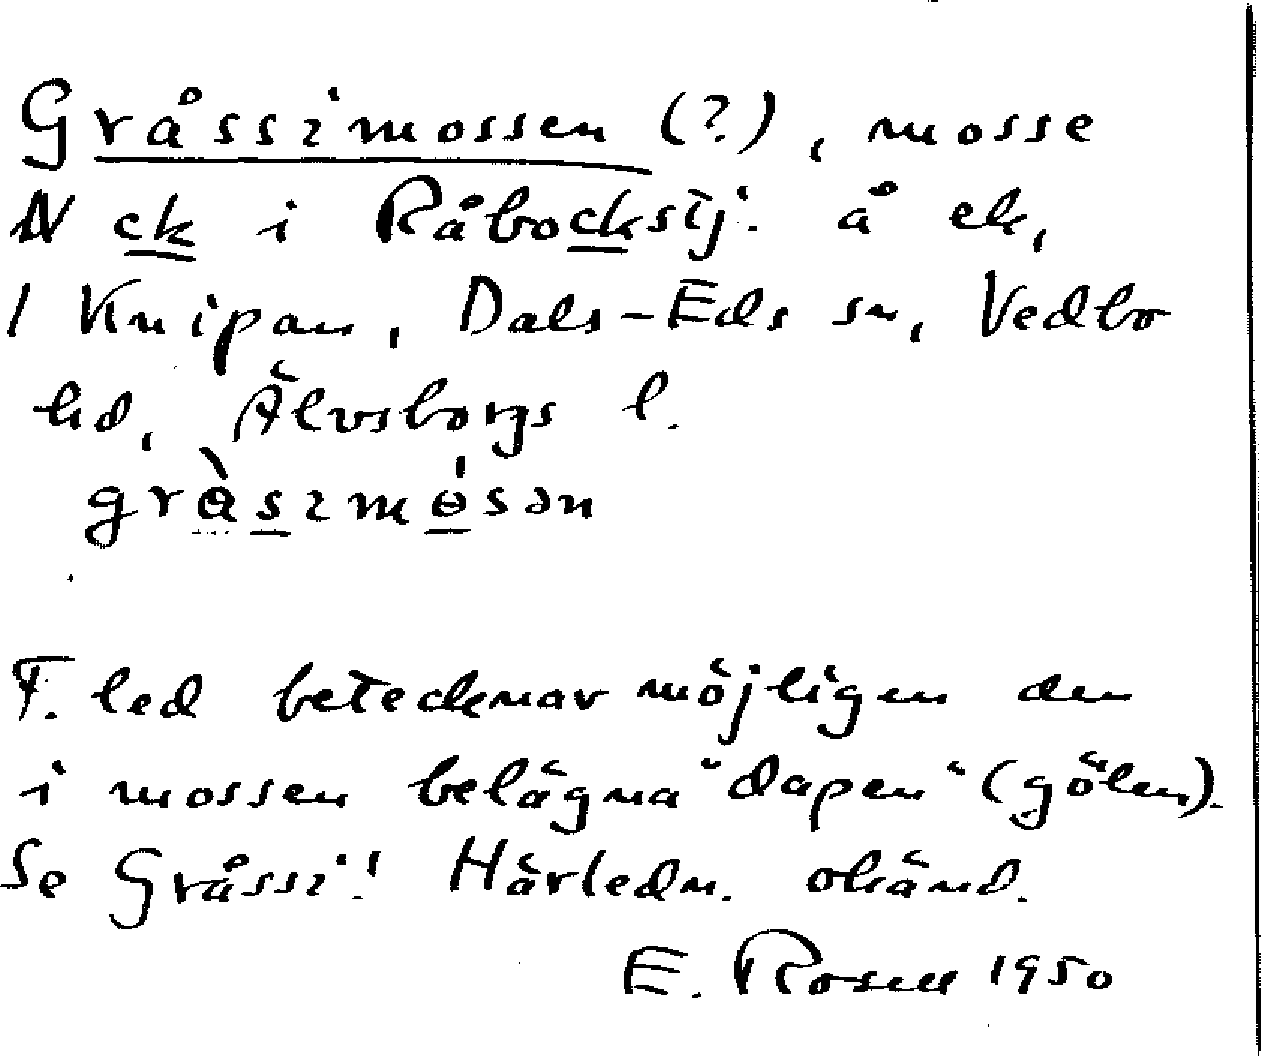 Gråssimossen (?), mosse
N ck i Råbockstj. å ek,
1 Knipan, Dals-Eds sn, Vedbo
hd, Älvsborgs l.
F. led betecknar möjligen den
i mossen belägna "dapen" (gölen).
Se Gråssi! Härledn. okänd.
E. Rosell 1950